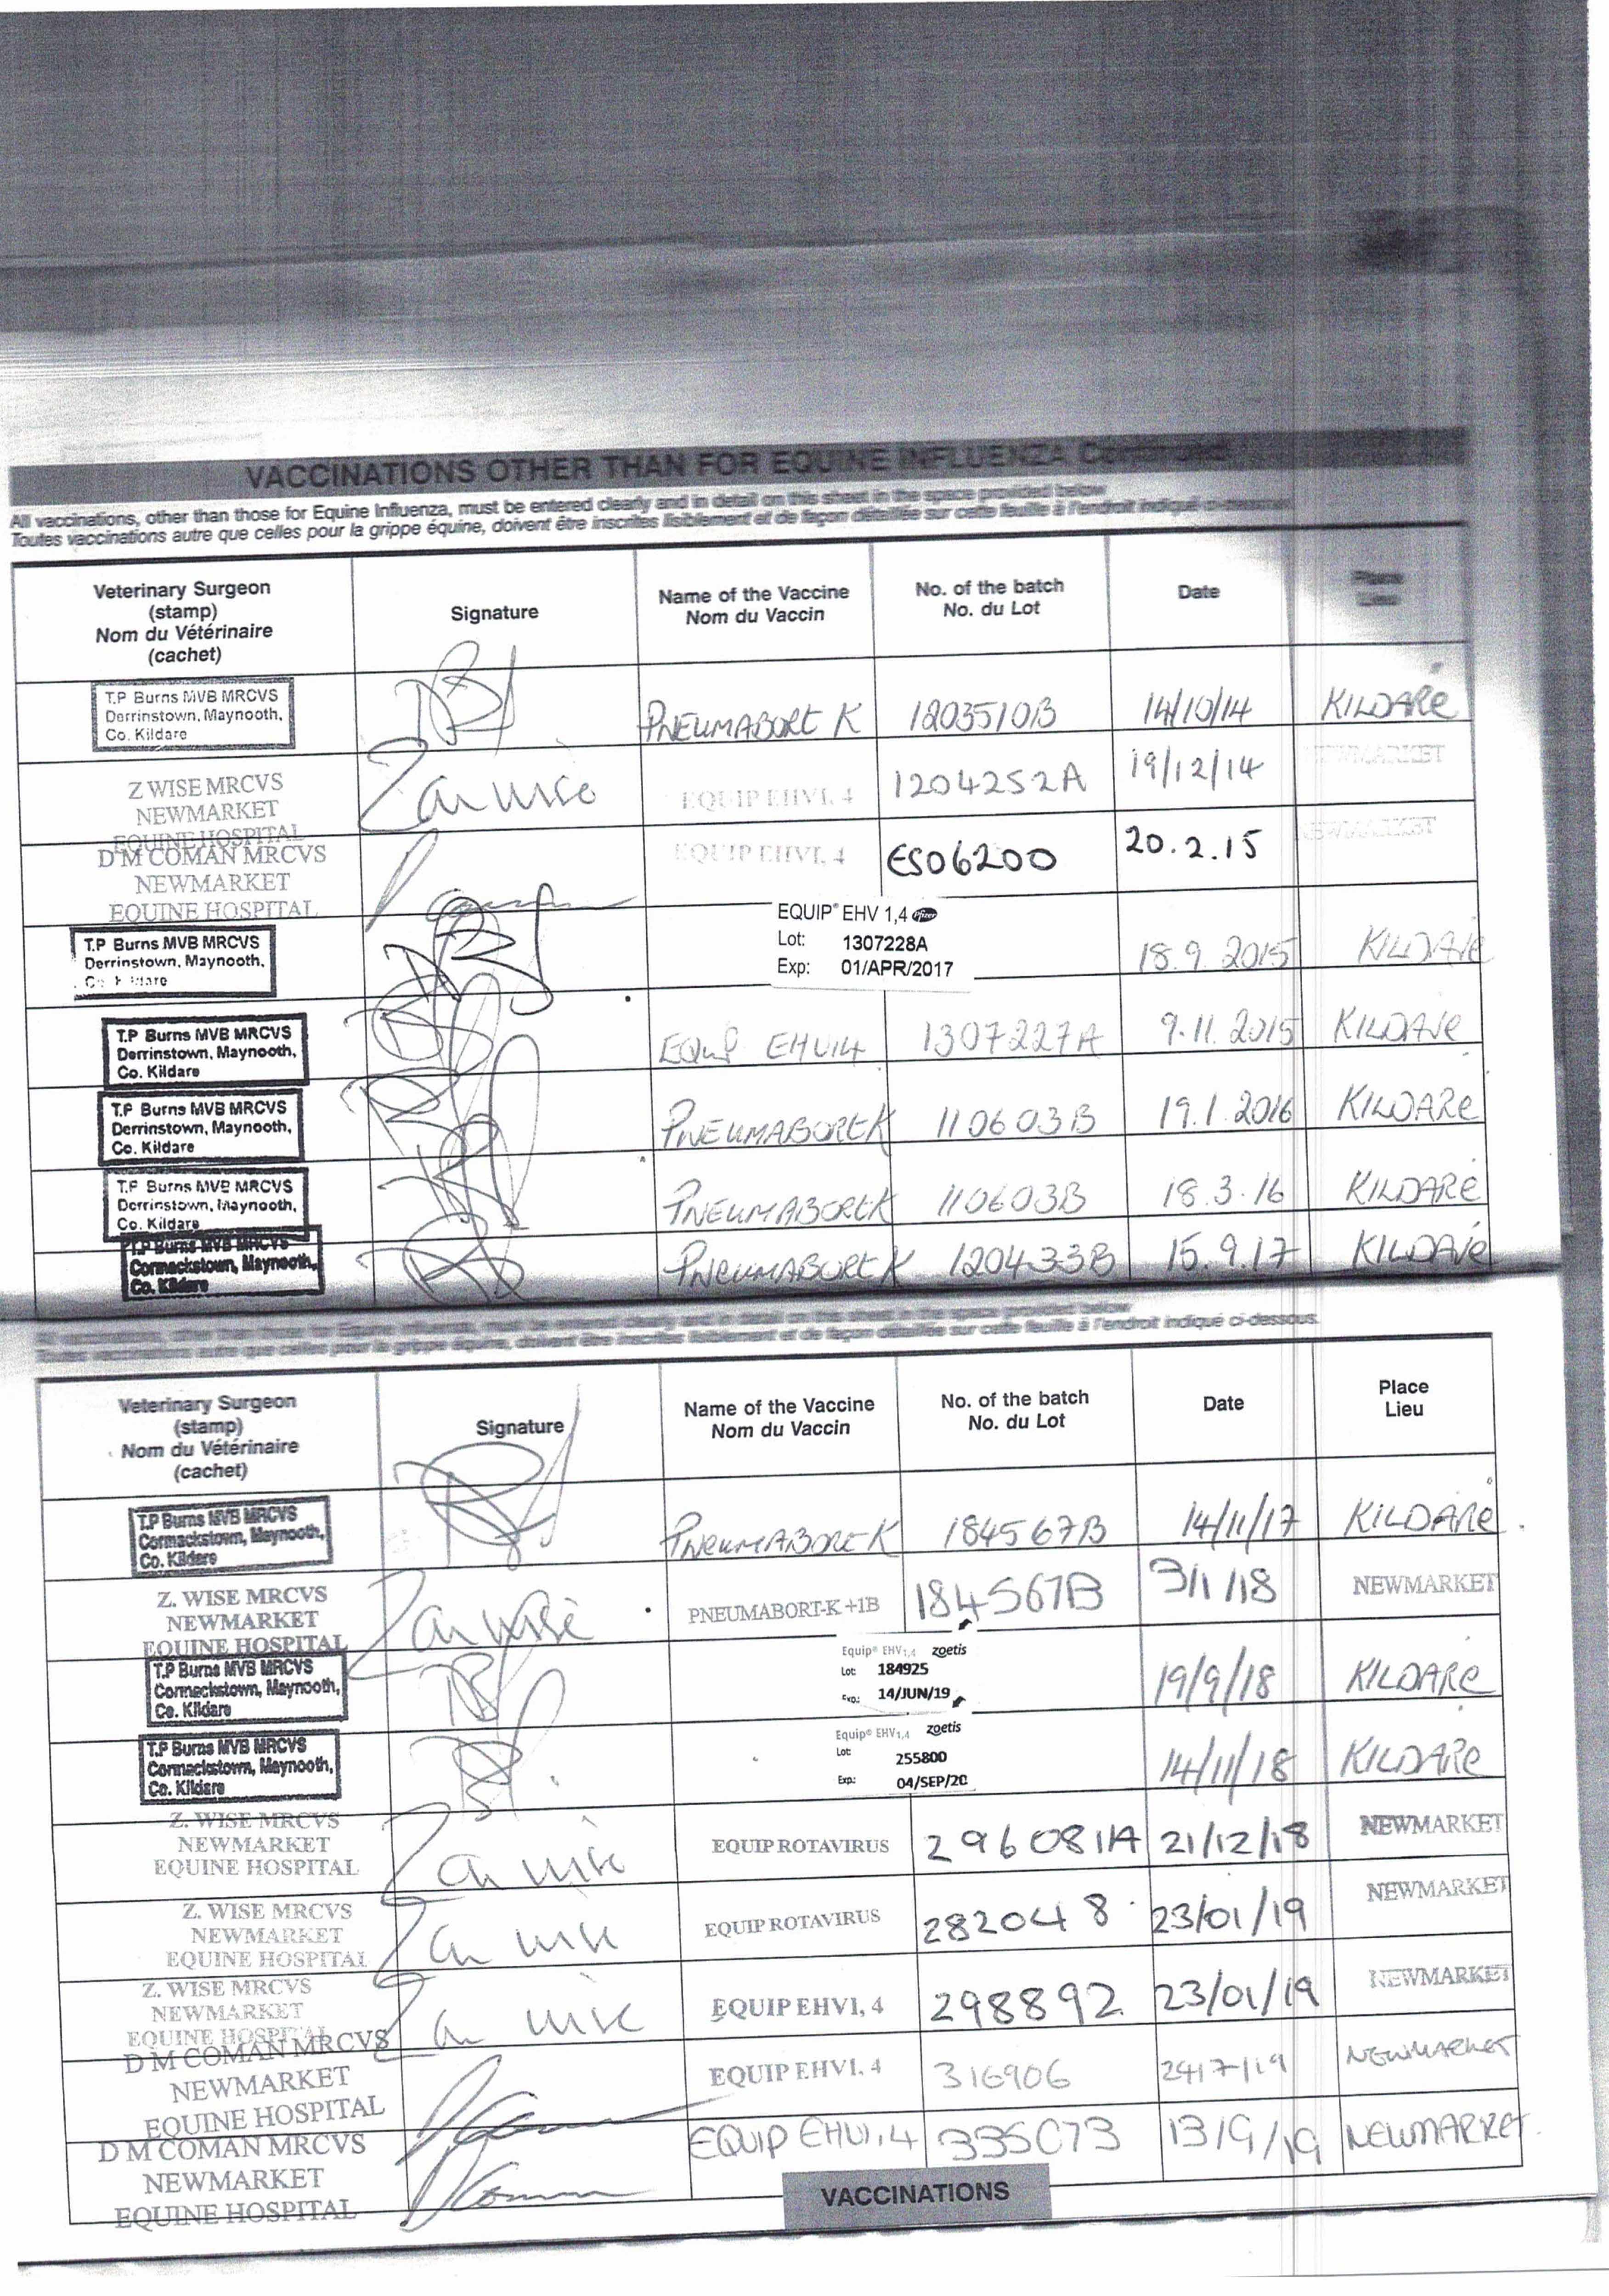 VACCINATIONS OTHER THAN FOR EQUINE INFLUENZA Continued
All vaccinations, other than those for Equine Influenza, must be entered clearly and in detail on this sheet in the space provided below.
Toutes vaccinations autre que celles pour la grippe équine, doivent être inscrites lisiblement et de façon détaillée sur cette feuille à l'endroit indiqué ci-dessous.
Veterinary Surgeon
(stamp)
Nom du Vétérinaire
(cachet)
Signature
Name of the Vaccine
Nom du Vaccin
No. of the batch
No. du Lot
Date
Place
Lieu
T.P Burns MVB MRCVS
Derrinstown, Maynooth,
Co. Kildare
PNEUMABORT K 1203510B 14/10/14 KILDARE
Z WISE MRCVS
NEWMARKET
EQUINE HOSPITAL
Zan Wise
EQUIP EHV1, 4 1204252A 19/12/14 NEWMARKET
D M COMAN MRCVS
NEWMARKET
EQUINE HOSPITAL
EQUIP EHV1, 4 ES06200 20.2.15 NEWMARKET
T.P Burns MVB MRCVS
Derrinstown, Maynooth,
Co. Kildare
EQUIP® EHV 1,4 Pfizer
Lot: 1307228A
Exp: 01/APR/2017
18.9.2015 KILDARE
T.P Burns MVB MRCVS
Derrinstown, Maynooth,
Co. Kildare
EQUIP EHV14 1307227A 9.11.2015 KILDARE
T.P Burns MVB MRCVS
Derrinstown, Maynooth,
Co. Kildare
PNEUMABORTK 110603B 19.1.2016 KILDARE
T.P Burns MVB MRCVS
Derrinstown, Maynooth,
Co. Kildare
PNEUMABORTK 110603B 18.3.16 KILDARE
T.P Burns MVB MRCVS
Cormackstown, Maynooth,
Co. Kildare
PNEUMABORT K 120433B 15.9.17 KILDARE
All vaccinations, other than those for Equine Influenza, must be entered clearly and in detail on this sheet in the space provided below.
Toutes vaccinations autre que celles pour la grippe équine, doivent être inscrites lisiblement et de façon détaillée sur cette feuille à l'endroit indiqué ci-dessous.
Veterinary Surgeon
(stamp)
Nom du Vétérinaire
(cachet)
Signature
Name of the Vaccine
Nom du Vaccin
No. of the batch
No. du Lot
Date
Place
Lieu
T.P Burns MVB MRCVS
Cormackstown, Maynooth,
Co. Kildare
PNEUMABORT K 184567B 14/11/17 KILDARE
Z. WISE MRCVS
NEWMARKET
EQUINE HOSPITAL
Zan Wise
PNEUMABORT-K +1B 184567B 3/1/18 NEWMARKET
T.P Burns MVB MRCVS
Cormackstown, Maynooth,
Co. Kildare
Equip® EHV1,4 zoetis
Lot: 184925
Exp.: 14/JUN/19
19/9/18 KILDARE
T.P Burns MVB MRCVS
Cormackstown, Maynooth,
Co. Kildare
Equip® EHV1,4 zoetis
Lot: 255800
Exp.: 04/SEP/20
14/11/18 KILDARE
Z. WISE MRCVS
NEWMARKET
EQUINE HOSPITAL
Zan Wise
EQUIP ROTAVIRUS 296081A 21/12/18 NEWMARKET
Z. WISE MRCVS
NEWMARKET
EQUINE HOSPITAL
Zan Wise
EQUIP ROTAVIRUS 282048 23/01/19 NEWMARKET
Z. WISE MRCVS
NEWMARKET
EQUINE HOSPITAL
Zan Wise
EQUIP EHV1, 4 298892 23/01/19 NEWMARKET
D M COMAN MRCVS
NEWMARKET
EQUINE HOSPITAL
EQUIP EHV1, 4 316906 24/7/19 NEWMARKET
D M COMAN MRCVS
NEWMARKET
EQUINE HOSPITAL
EQUIP EHV1,4 335073 13/9/19 NEWMARKET
VACCINATIONS